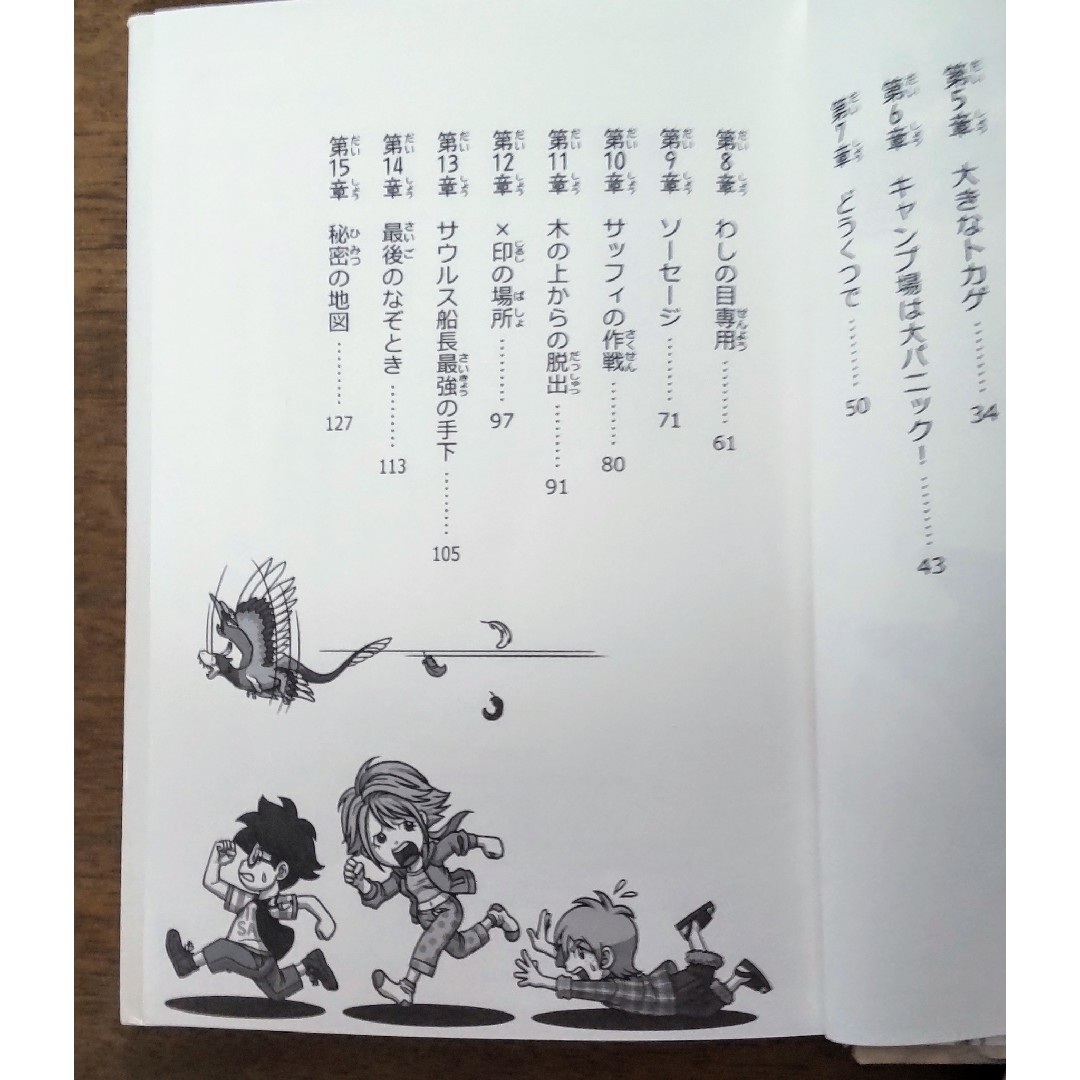 第5章 大きなトカゲ ………… 34
第6章 キャンプ場は大パニック！ ………… 43
第7章 どうくつで ………… 50
第8章 わしの目専用 ………… 61
第9章 ソーセージ ………… 71
第10章 サッフィの作戦 ………… 80
第11章 木の上からの脱出 ………… 91
第12章 ×印の場所 ………… 97
第13章 サウルス船長最強の手下 ………… 105
第14章 最後のなぞとき ………… 113
第15章 秘密の地図 ………… 127
SA